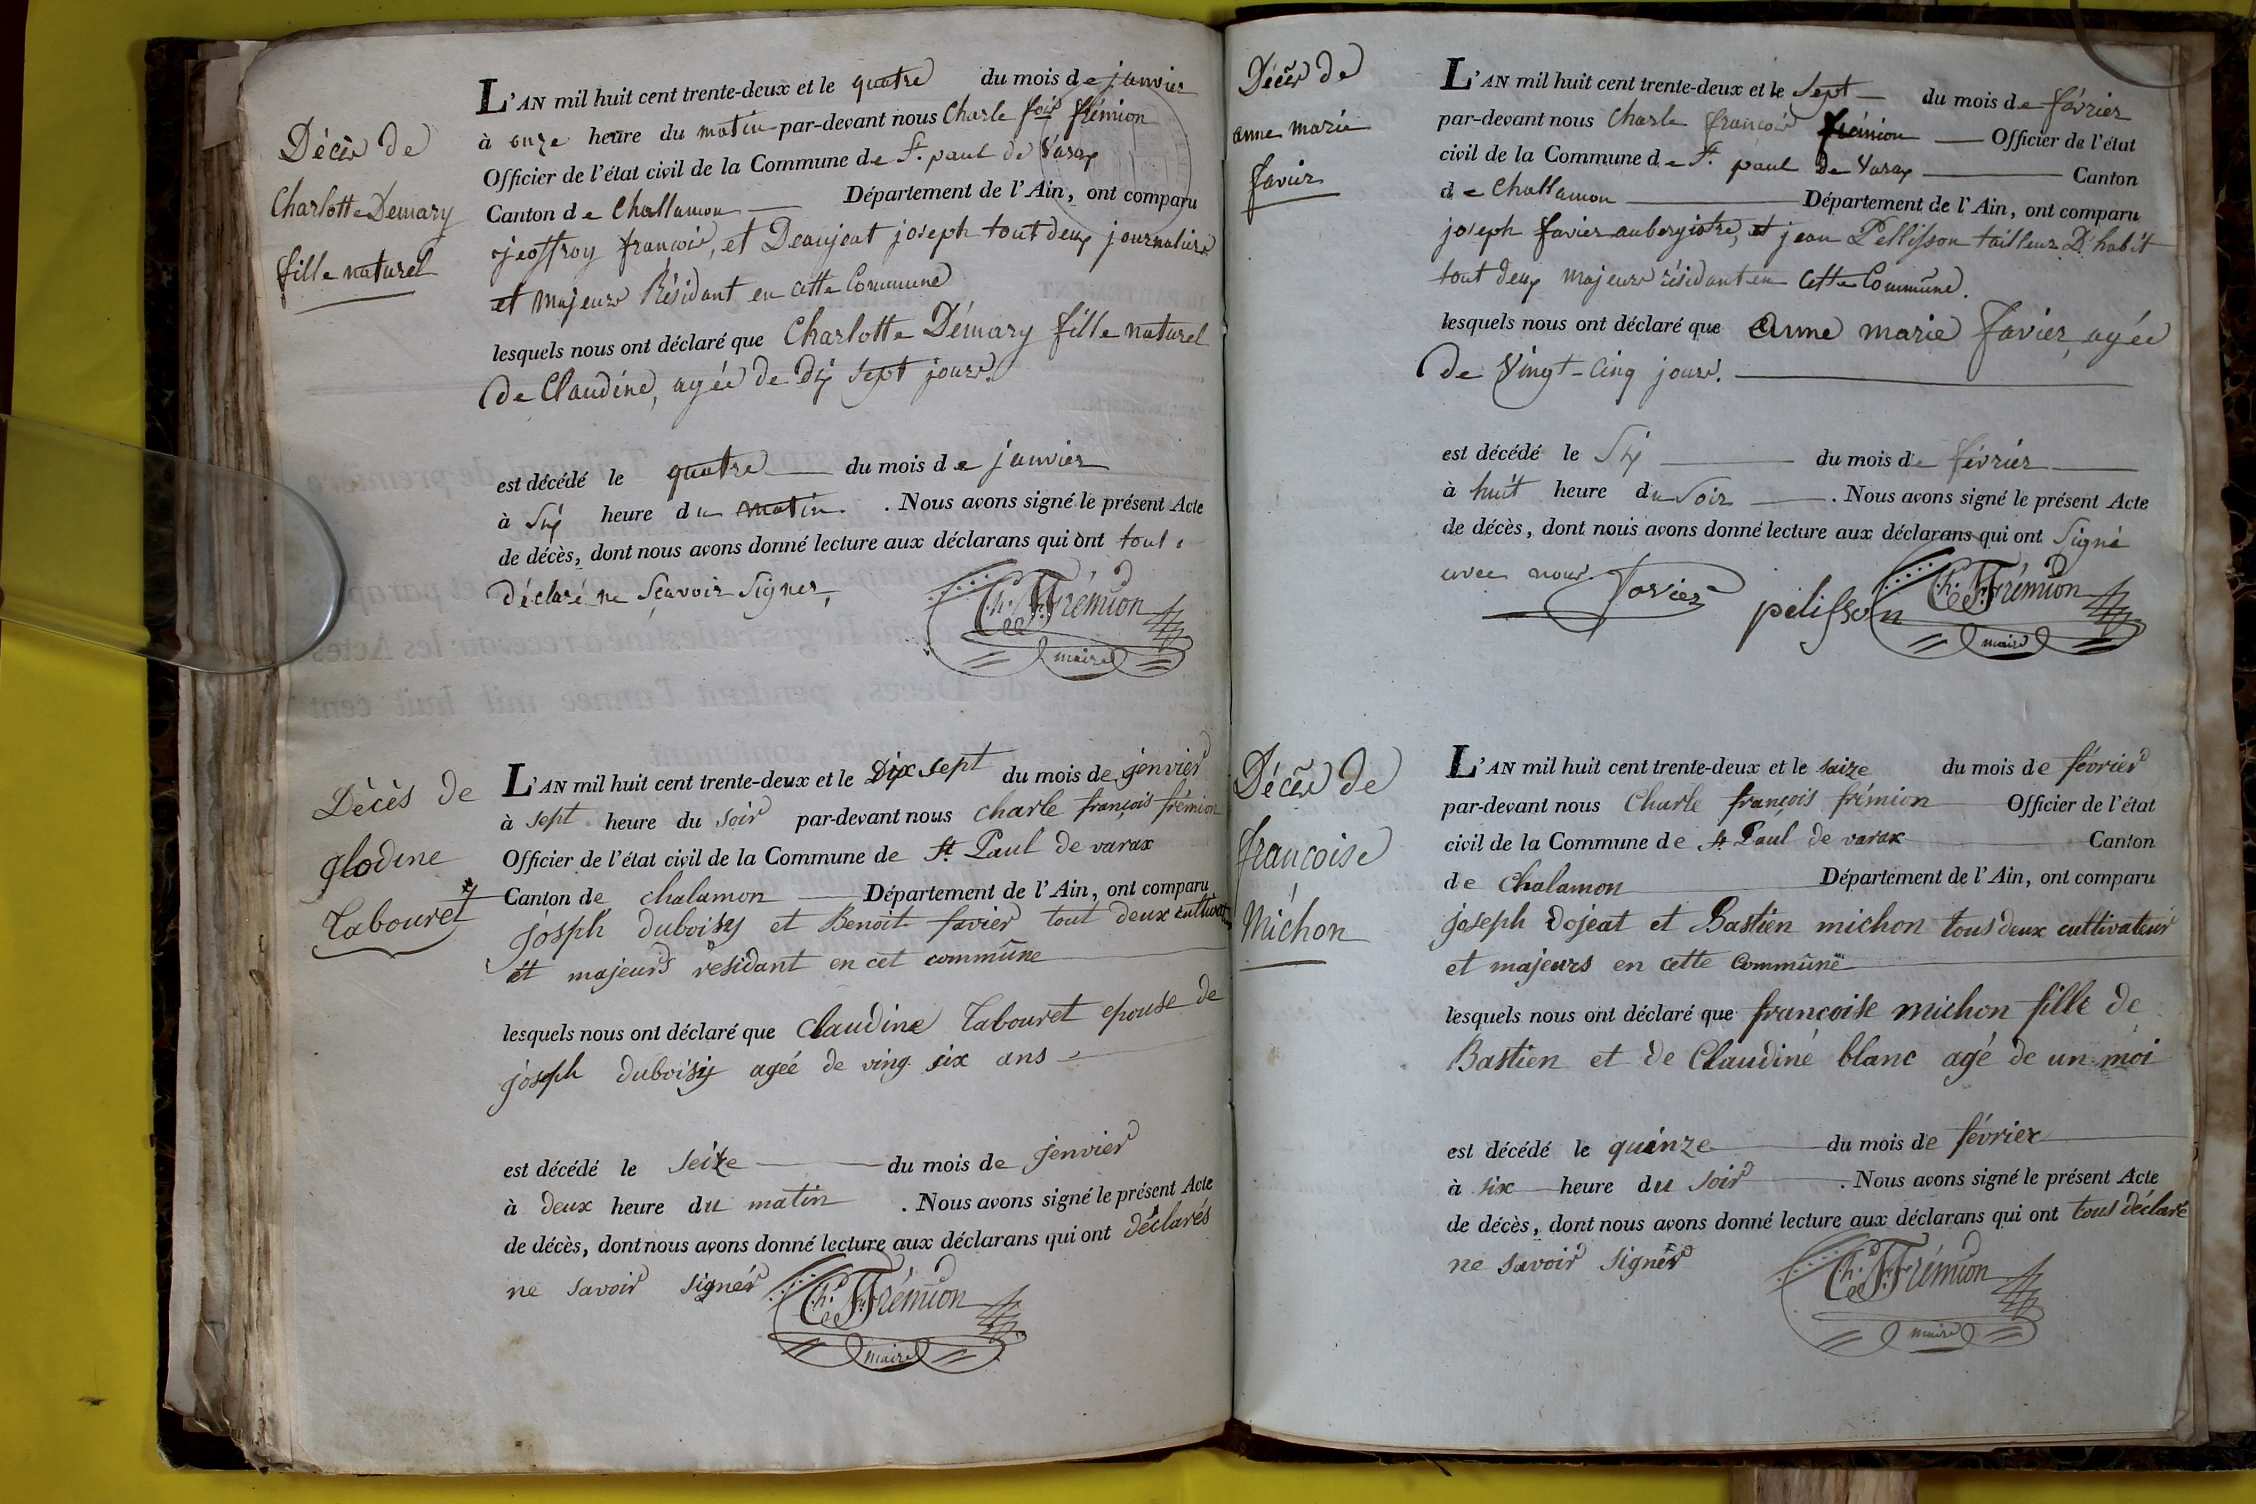 Décès de
Charlotte Demary
fille naturel
L'AN mil huit cent trente-deux et le quatre du mois de janvier
à onze heure du matin par-devant nous Charle fois frémion
Officier de l'état civil de la Commune de St. paul de Varax
Canton de Challamon Département de l'Ain, ont comparu
jeoffroy françois, et Deaujeat joseph tout deux journaliers
et majeurs Résidant en cette Commune
lesquels nous ont déclaré que Charlotte Démary fille naturel
de Claudine, agée de dix sept jours.
est décédé le quatre du mois de janvier
à Six heure du matin. . Nous avons signé le présent Acte
de décès, dont nous avons donné lecture aux déclarans qui ont tout
déclaré ne Sçavoir Signer,
Ch. F. Frémion
maire
Décès de
glodine
Tabouret
L'AN mil huit cent trente-deux et le Dix sept du mois de jenvier
à sept heure du soir par-devant nous charle françois frémion
Officier de l'état civil de la Commune de St Paul de varax
Canton de chalamon Département de l'Ain, ont comparu
josph duboisy et Benoit favier tout deux cultivat
et majeurs residant en cet commune
lesquels nous ont déclaré que claudine Tabouret epouse de
joseph duboisy ageé de ving six ans
est décédé le seize du mois de jenvier
à deux heure du matin . Nous avons signé le présent Acte
de décès, dont nous avons donné lecture aux déclarans qui ont déclarés
ne savoir signér
Ch. F. Frémion
maire
Décès de
anne marie
favier
L'AN mil huit cent trente-deux et le Sept du mois de février
par-devant nous Charle françois frémion Officier de l'état
civil de la Commune de St. paul de Varax Canton
de Challamon Département de l'Ain, ont comparu
joseph favier aubergistre, et jean Pellisson tailleur D'habit
tout deux majeurs résidant en cette Commune.
lesquels nous ont déclaré que Anne marie favier, agée
de Vingt-Cinq jours.
est décédé le Six du mois de février
à huit heure du Soir . Nous avons signé le présent Acte
de décès, dont nous avons donné lecture aux déclarans qui ont Signé
avec nous. favier pelisson Ch. F. Frémion
maire
Décès de
françoise
Michon
L'AN mil huit cent trente-deux et le saize du mois de février
par-devant nous Charle françois frémion Officier de l'état
civil de la Commune de St Paul de varax Canton
de Chalamon Département de l'Ain, ont comparu
joseph Dojeat et Bastien michon tous deux cultivateur
et majeurs en cette commune
lesquels nous ont déclaré que françoise michon fille de
Bastien et de Claudine blanc agé de un moi
est décédé le quinze du mois de février
à six heure du soir . Nous avons signé le présent Acte
de décès, dont nous avons donné lecture aux déclarans qui ont tous déclaré
ne savoir signér
Ch. F. Frémion
maire